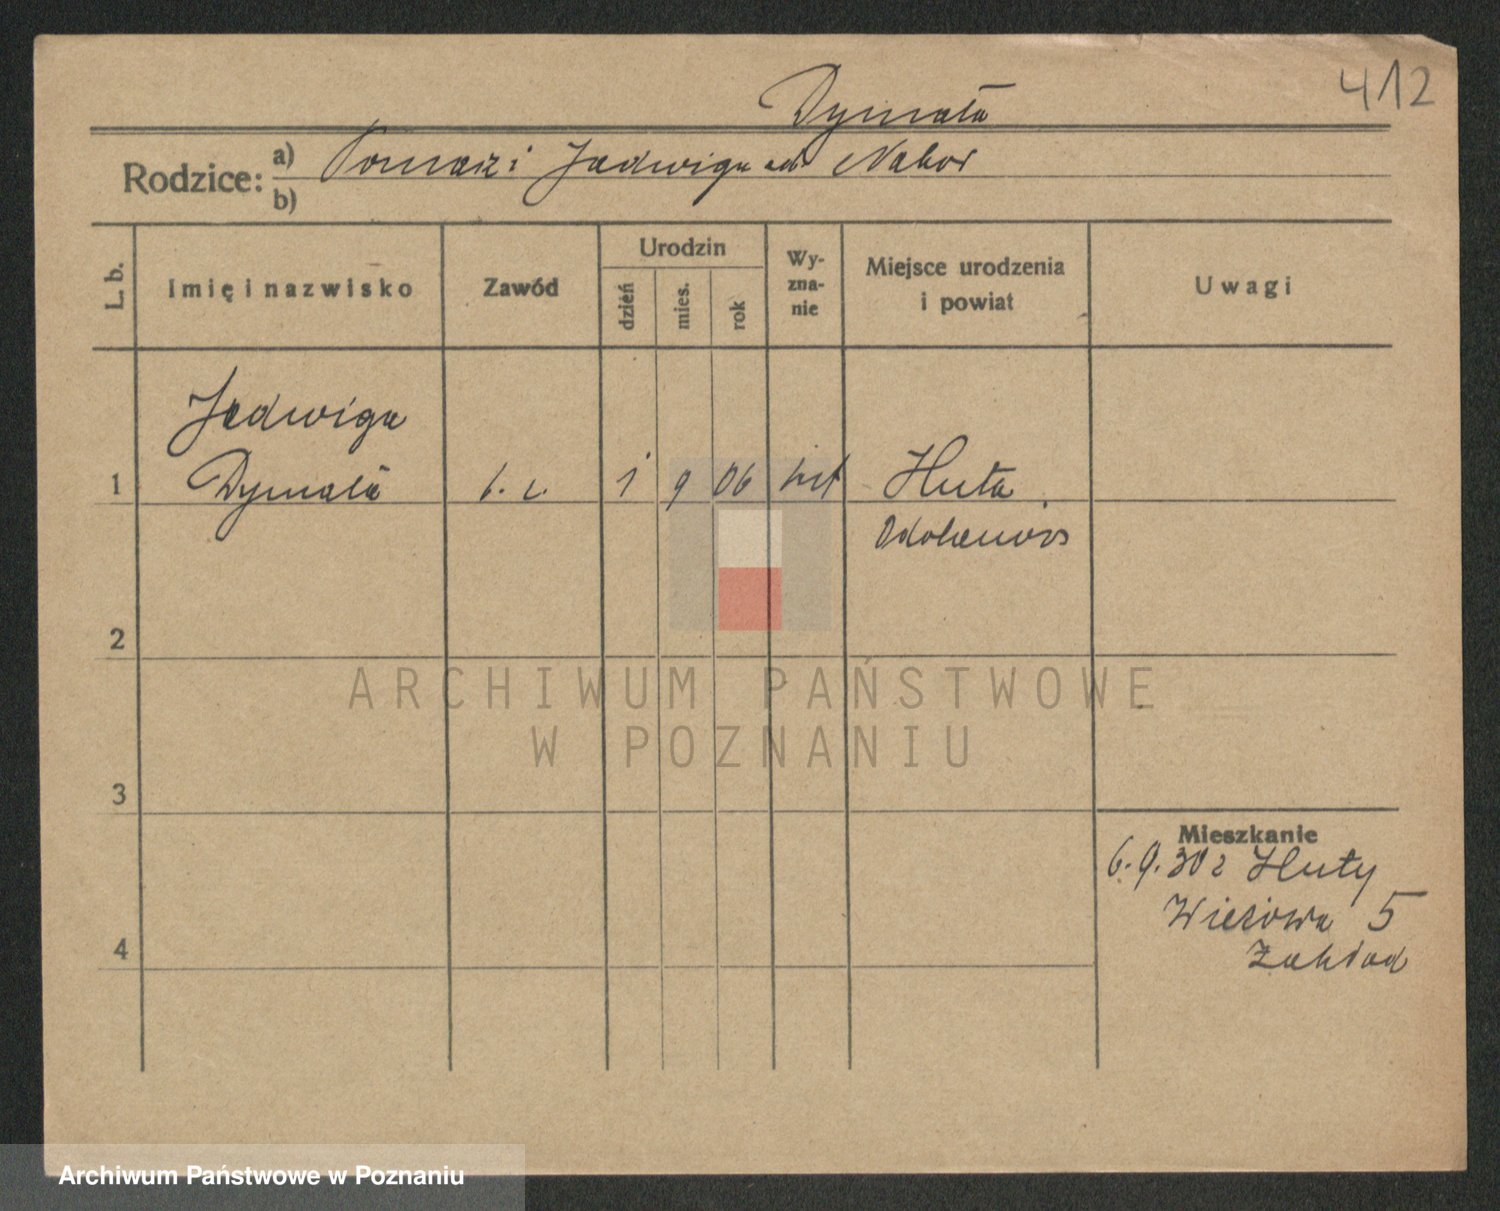 412
Dymała
Rodzice: a) Tomasz i Jadwiga Nabor
b)
L. b. Imię i nazwisko Zawód Urodzin dzień mies. rok Wy-zna-nie Miejsce urodzenia i powiat Uwagi
Jadwiga
1 Dymała b. z. 1 9 06 kat Huta
Odolanów
2
ARCHIWUM PAŃSTWOWE
W POZNANIU
3
Mieszkanie
6.9.30 z Huty
Wieżowa 5
4 Zakład
Archiwum Państwowe w Poznaniu